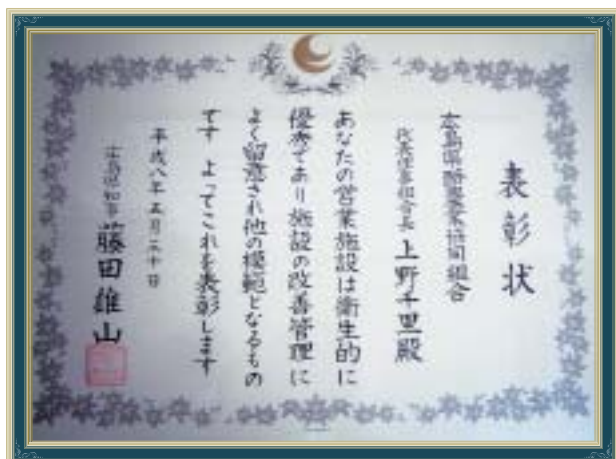 表彰状
広島県酪農業協同組合
代表理事組合長 上野千里殿
あなたの営業施設は衛生的に
優秀であり施設の改善管理に
よく留意され他の模範となるもの
です よってこれを表彰します
平成八年五月二十日
広島県知事 藤田雄山